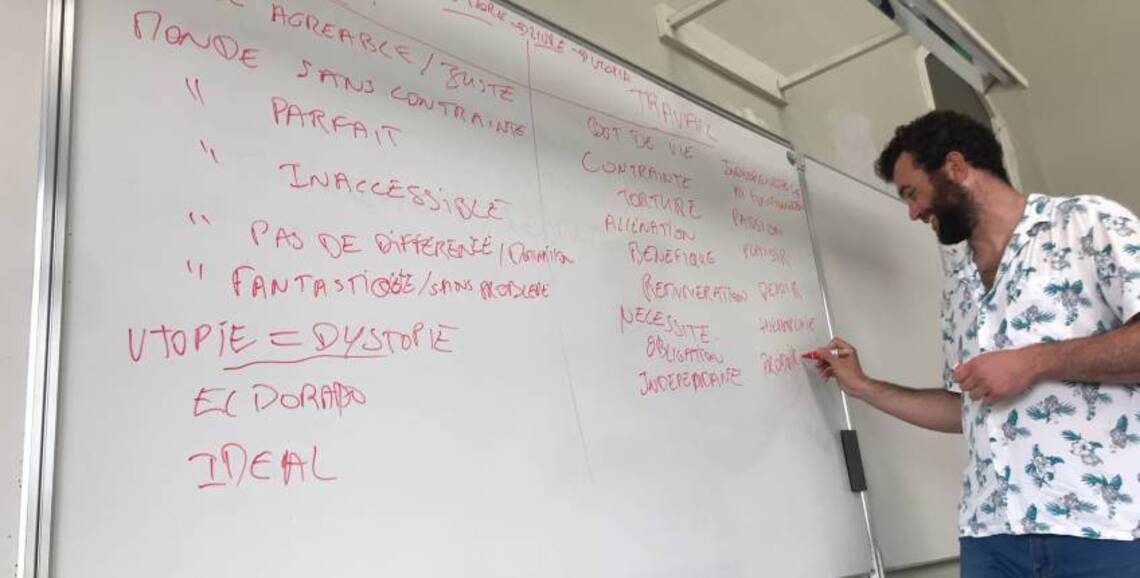 AGREABLE / JUSTE
MONDE SANS CONTRAINTE
" PARFAIT
" INACCESSIBLE
" PAS DE DIFFÉRENCE /
" FANTASTIQUE / SANS PROBLEME
UTOPIE = DYSTOPIE
EL DORADO
IDEAL
→ LIVRE → UTOPIA
TRAVAIL
BUT DE VIE
CONTRAINTE
TORTURE
ALIÉNATION
BENEFIQUE
REMUNERATION
NECESSITE
OBLIGATION
INDEPENDANE
PASSION
PLAISIR
DEVOIR
HIERARCHIE